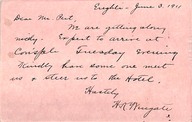 June 3, 1911
Dear Mr. Peet,
We are getting along
nicely. Expect to arrive at
Consple Tuesday Evening
Kindly have some one meet
us & steer us to the Hotel.
Hastily
Wingate